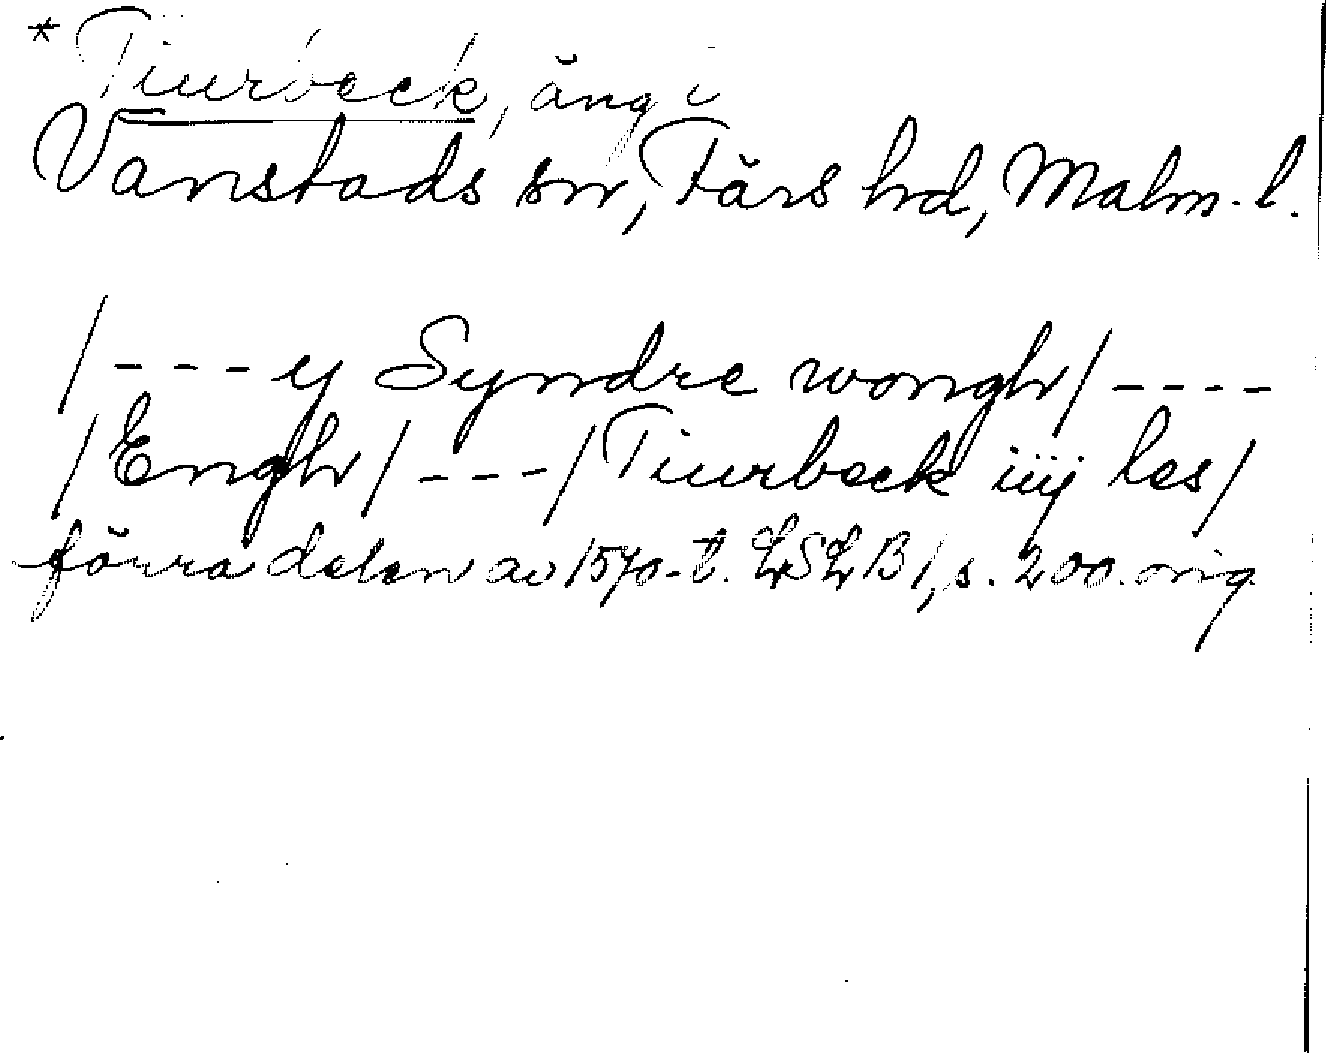 * Tiurbeck, äng i
Vanstads sn, Färs hd, Malm. l.
/---y Syndre wongh/----
/Engh/---/Tiurbeck iiij les/
förra delen av 1570-t. LSLB1, s. 200. orig